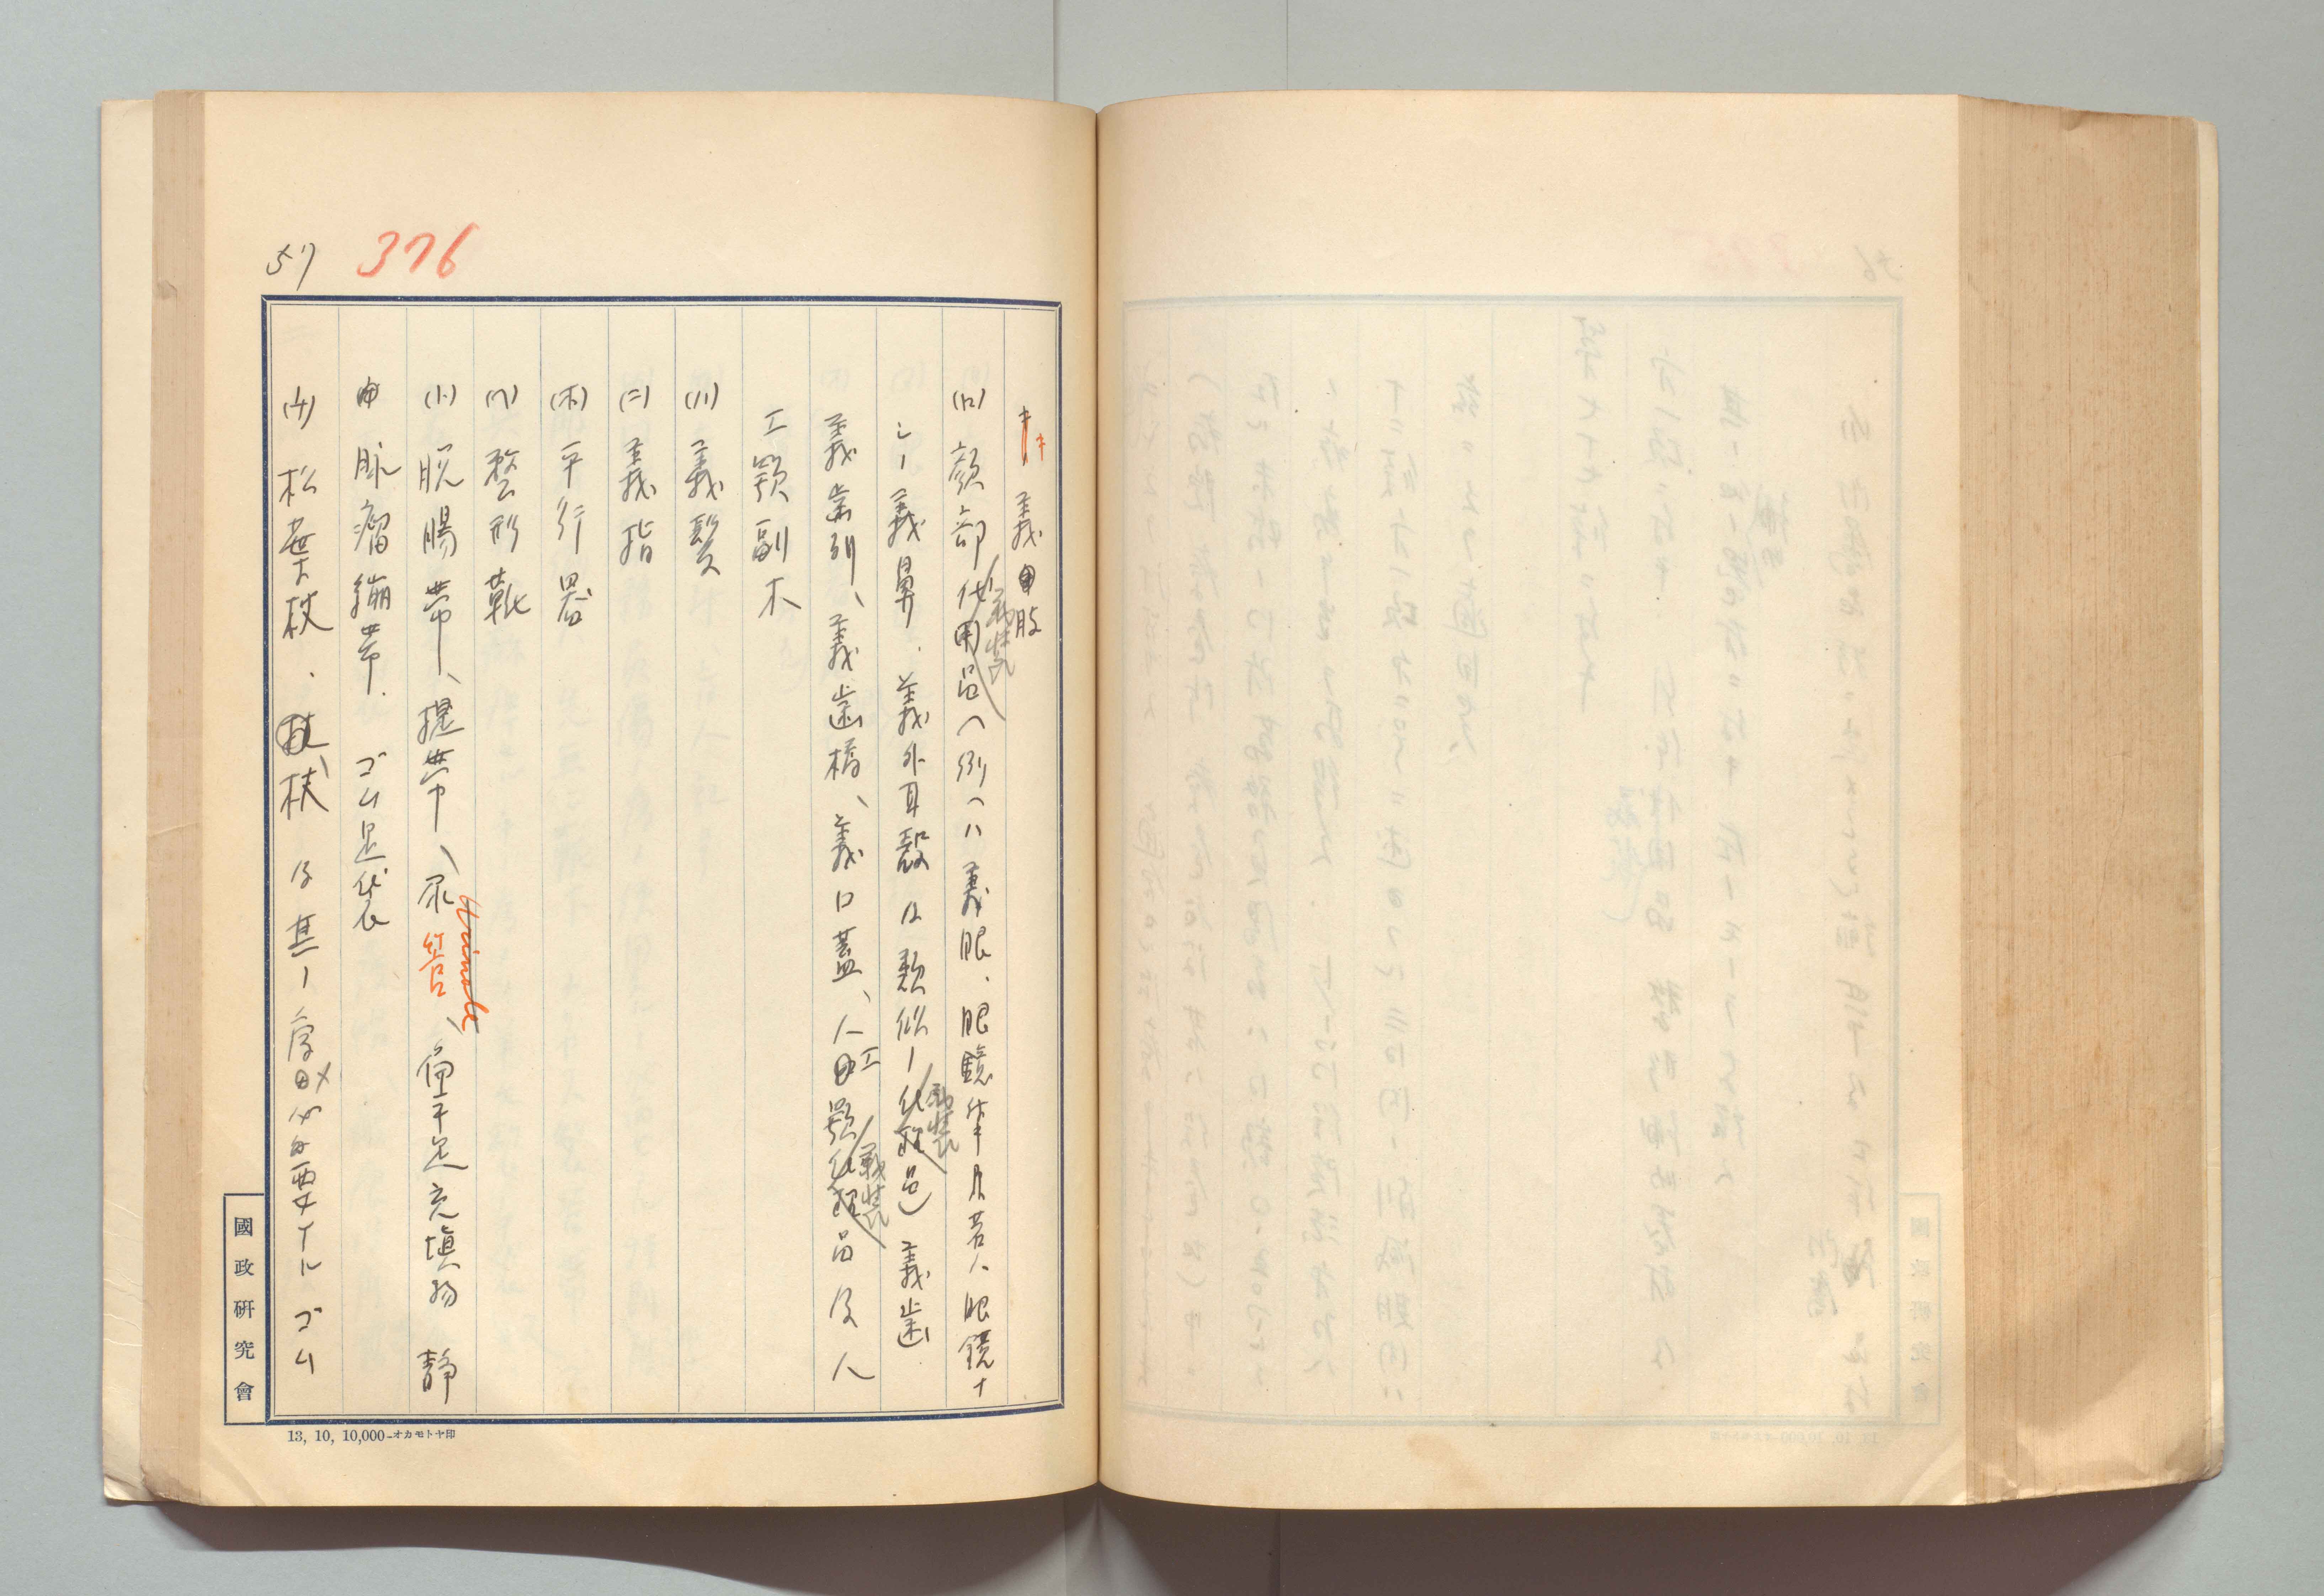 57 376
義肢
(ロ) 顔部代用品(例ヘハ義眼、眼鏡牟及若ハ眼鏡ナ
義装
シノ義鼻、義外耳殻及類似ノ代程品)義歯
義装
義歯列、義歯橋、義口蓋、人工顎代程品及人
義装
工顎副木
(ハ) 義髪
(ニ) 義指
(ホ) 平行器
(ヘ) 整形靴
(ト) 脱腸帯、提帯、尿管、偏平足充塡物 静
Urinale
脈瘤繃帯、ゴム足袋
(チ) 松葉杖、杖及其ノ必要ナルゴム
國政研究會
13, 10, 10,000-オカモトヤ印